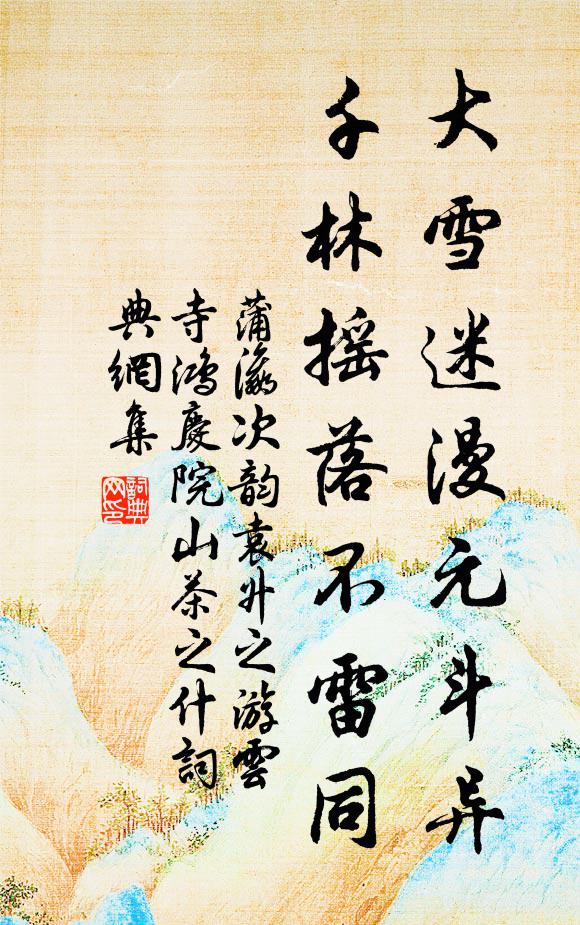 大雪迷漫元斗异
千林摇落不雷同
蒲瀛次韵袁升之游雲
寺鸿慶院山茶之什詞
典網集
詞典网印